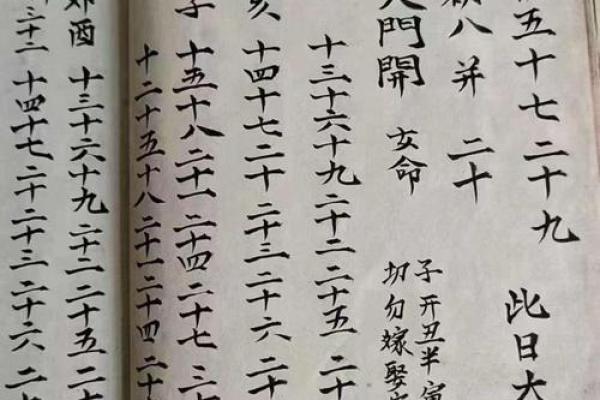 五十七 二十九 此日大
八并 二十
門開 女命 子开丑半寅
切勿嫁娶
十三十六十九二十二二十五二十
亥 十四十七二十二十三二十六二十
子 十五十八二十一二十四二十七三
十二十五十八二十一二十四二十
酉 十三十六十九二十二二十五二十
十四十七二十二十三二十六二十